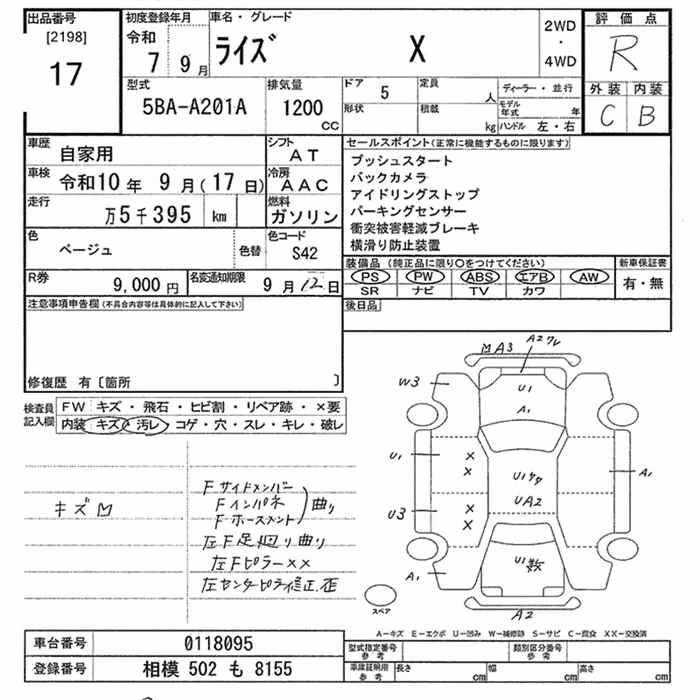 出品番号
[2198]
17
初度登録年月
令和
7 9月
車名・グレード
ライズ X
2WD
・
4WD
評価点
R
外装 内装
C B
型式
5BA-A201A
排気量
1200
CC
ドア 5
形状
定員 人
積載 kg
ディーラー・並行
モデル年式 年
ハンドル 左・右
車歴 自家用
車検 令和10年 9月(17日)
走行 万5千395 km
シフト
AT
冷房
AAC
燃料
ガソリン
色 ベージュ
色替
色コード
S42
R券 9,000円
名変通知期限 9月12日
セールスポイント(正常に機能するものに限ります)
プッシュスタート
バックカメラ
アイドリングストップ
パーキングセンサー
衝突被害軽減ブレーキ
横滑り防止装置
装備品(純正品に限り○をつけてください)
PS PW ABS エアB AW
SR ナビ TV カワ
新車保証書
有・無
後日品
注意事項申告欄(不具合内容等は具体的に記入して下さい)
修復歴 有〔箇所 〕
検査員
記入欄
FW キズ・飛石・ヒビ割・リペア跡・×要
内装 キズ・汚レ・コゲ・穴・スレ・キレ・破レ
キズM
Fサイドメンバー
Fインパネ
Fホースメント
曲り
左F足廻り曲り
左Fピラー××
左センターピラー修正歪
MA3
A2ワレ
W3
U1
A1
U1
×
×
U1
A1
UA2
U3
×
×
U1数
A1
A2
スペア
A-キズ E-エクボ U-凹み W-補修跡 S-サビ C-腐食 XX-交換済
車台番号 0118095
登録番号 相模 502 も 8155
型式指定番号
参考
類別区分番号
参考
車庫証明用
参考
長さ cm
幅 cm
高さ cm